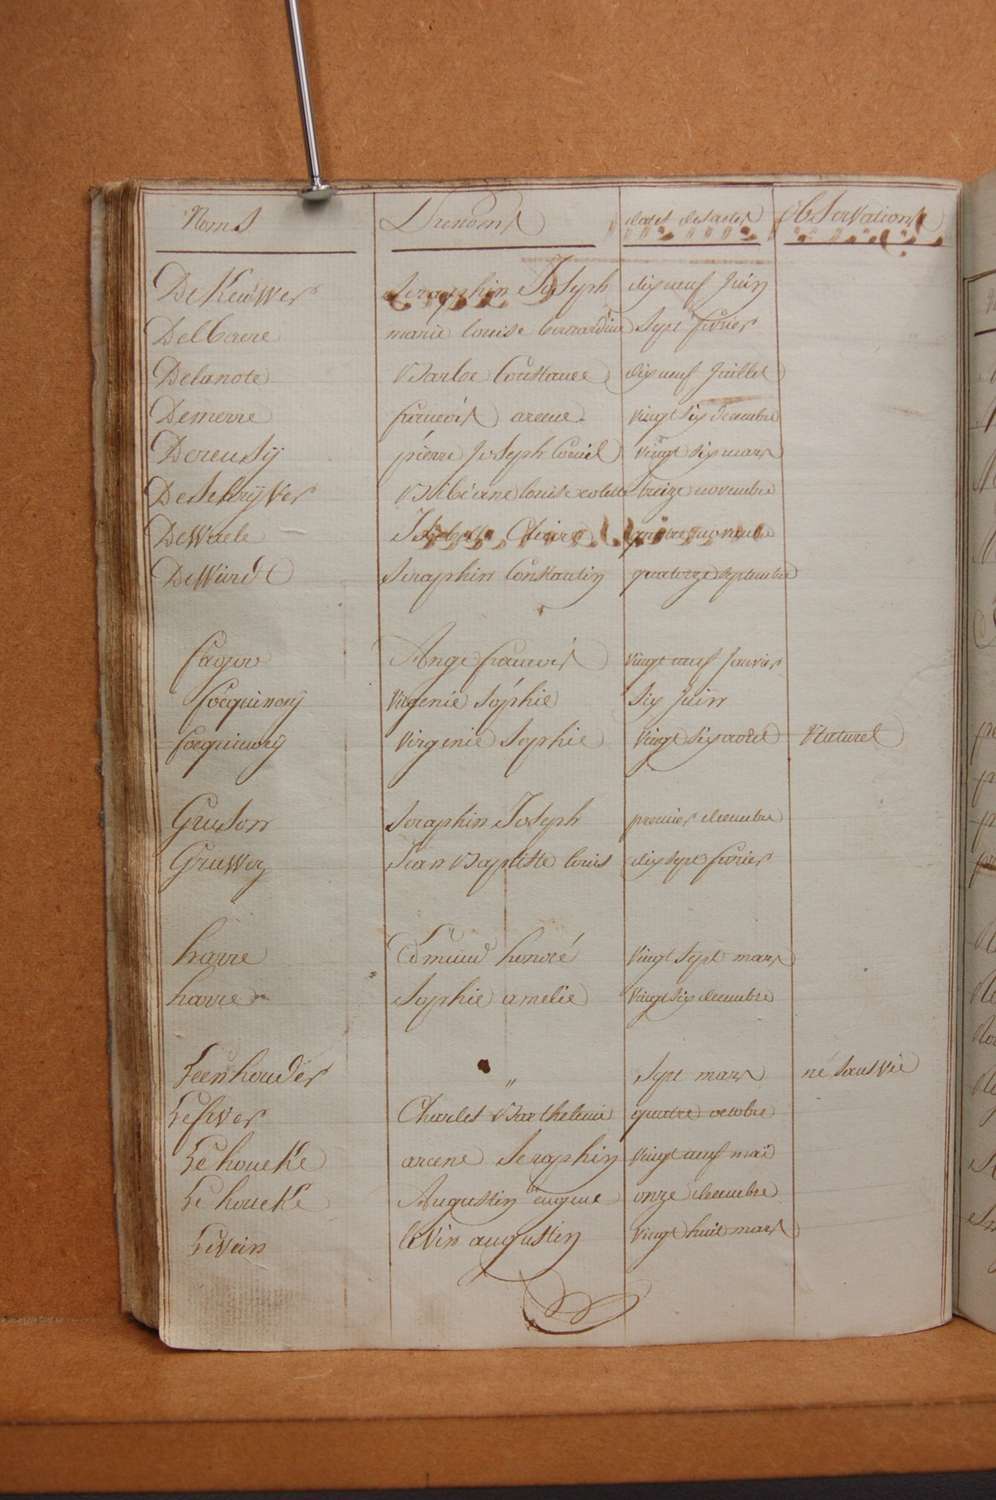 Noms Prenoms dates des actes Observations
DeKeuwer Seraphin Joseph dix neuf Juin
Delbaere marie louise bernardine Sept fevrier
Delanote Barbe Constance dix neuf Juillet
Demerre francois arcene vingt Six decembre
Dereusij pierre Joseph Corneil vingt Six mars
DeSchrijver louise colette treize novembre
DeWaele quatre novembre
DeWündt Seraphin Constantin quatorze septembre
fagoo Ange francois vingt neuf Janvier
focqueinoy Virgenie Sophie Six Juin
focqueinoy Virgenie Sophie vingt Six aout Naturel
GruSon Seraphin Joseph premier decembre
Gruwez Jean Baptiste louis dix Sept fevrier
harre Edmund honoré vingt Sept mars
harre Sophie amelie vingt Six decembre
Leenhouder " Sept mars né Sans vie
Lefever Charles Barthelemi quatre octobre
Lehoucke arcene Seraphin vingt neuf mai
Lehoucke Augustin eugene onze decembre
Livein livin augustin vingt huit mars